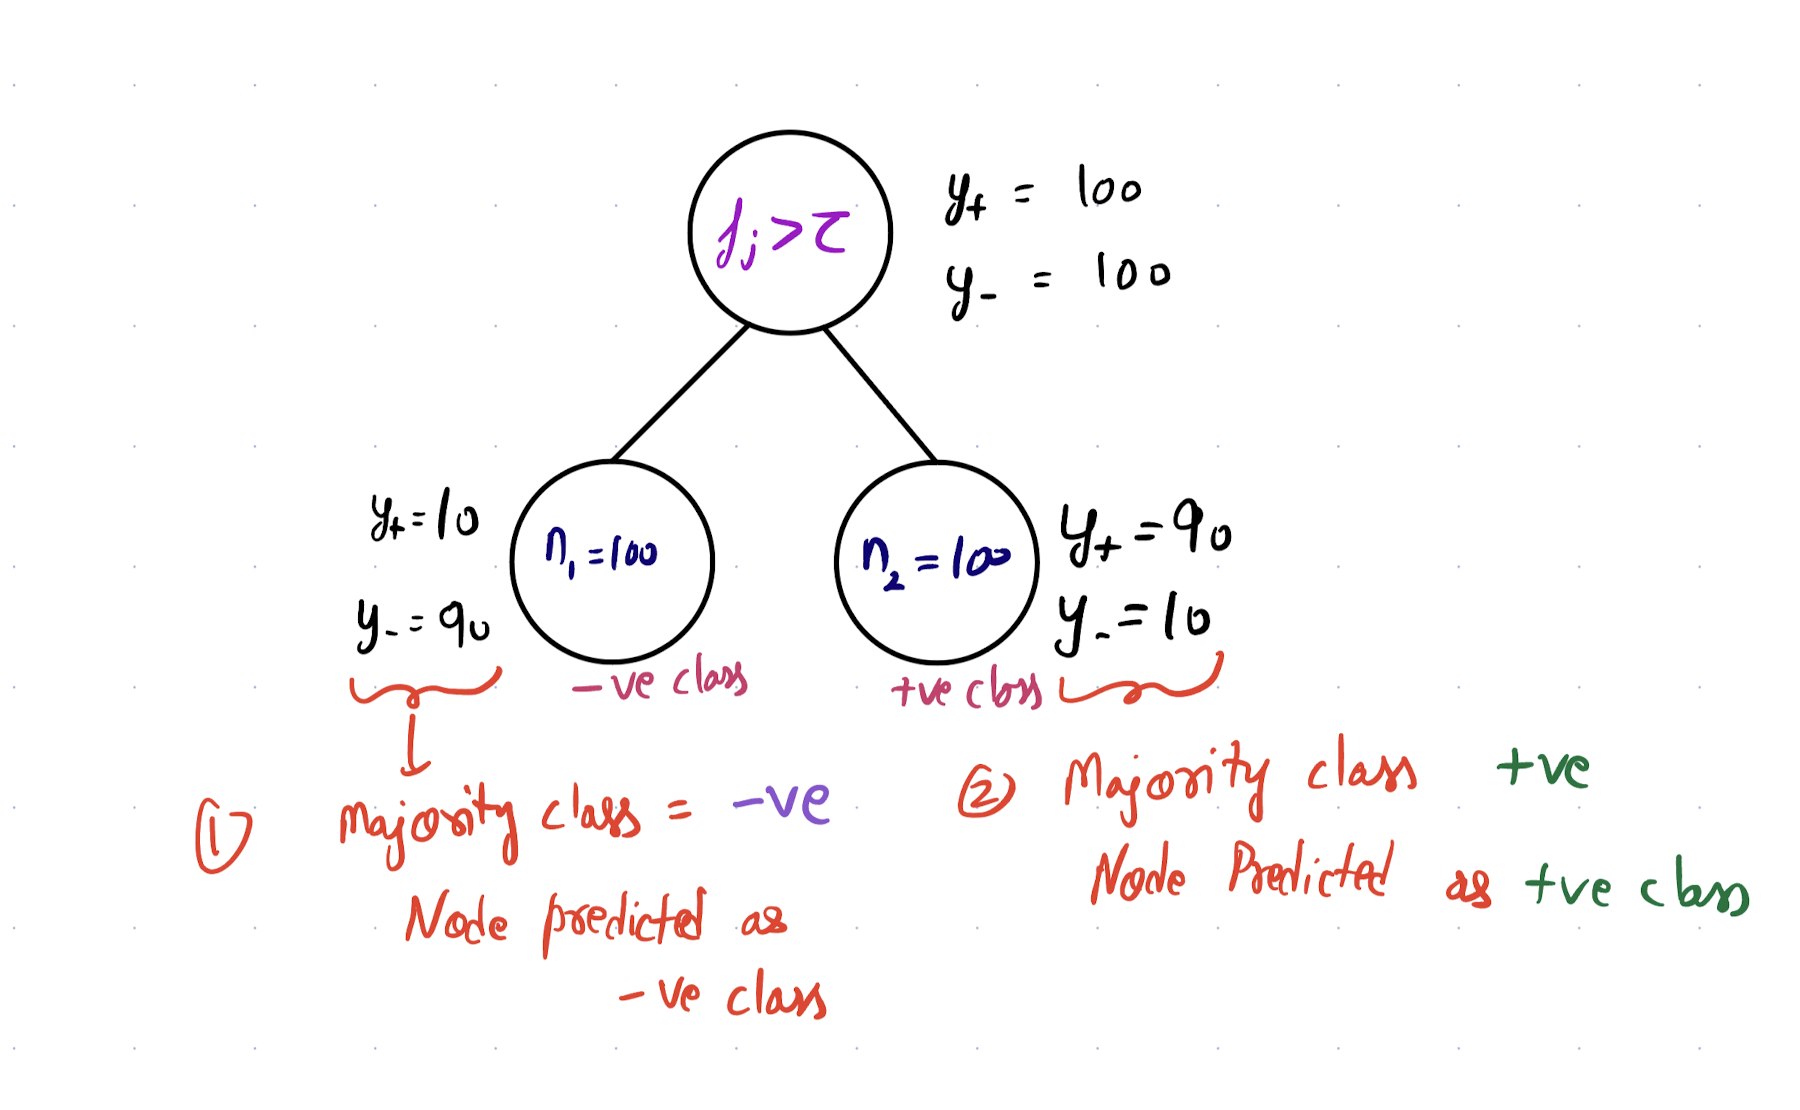 fj > τ
y+ = 100
y- = 100
y+ = 10
y- = 90
n1 = 100
n2 = 100
y+ = 90
y- = 10
-ve class
+ve class
① Majority class = -ve
Node predicted as
-ve class
② Majority class +ve
Node Predicted as +ve class